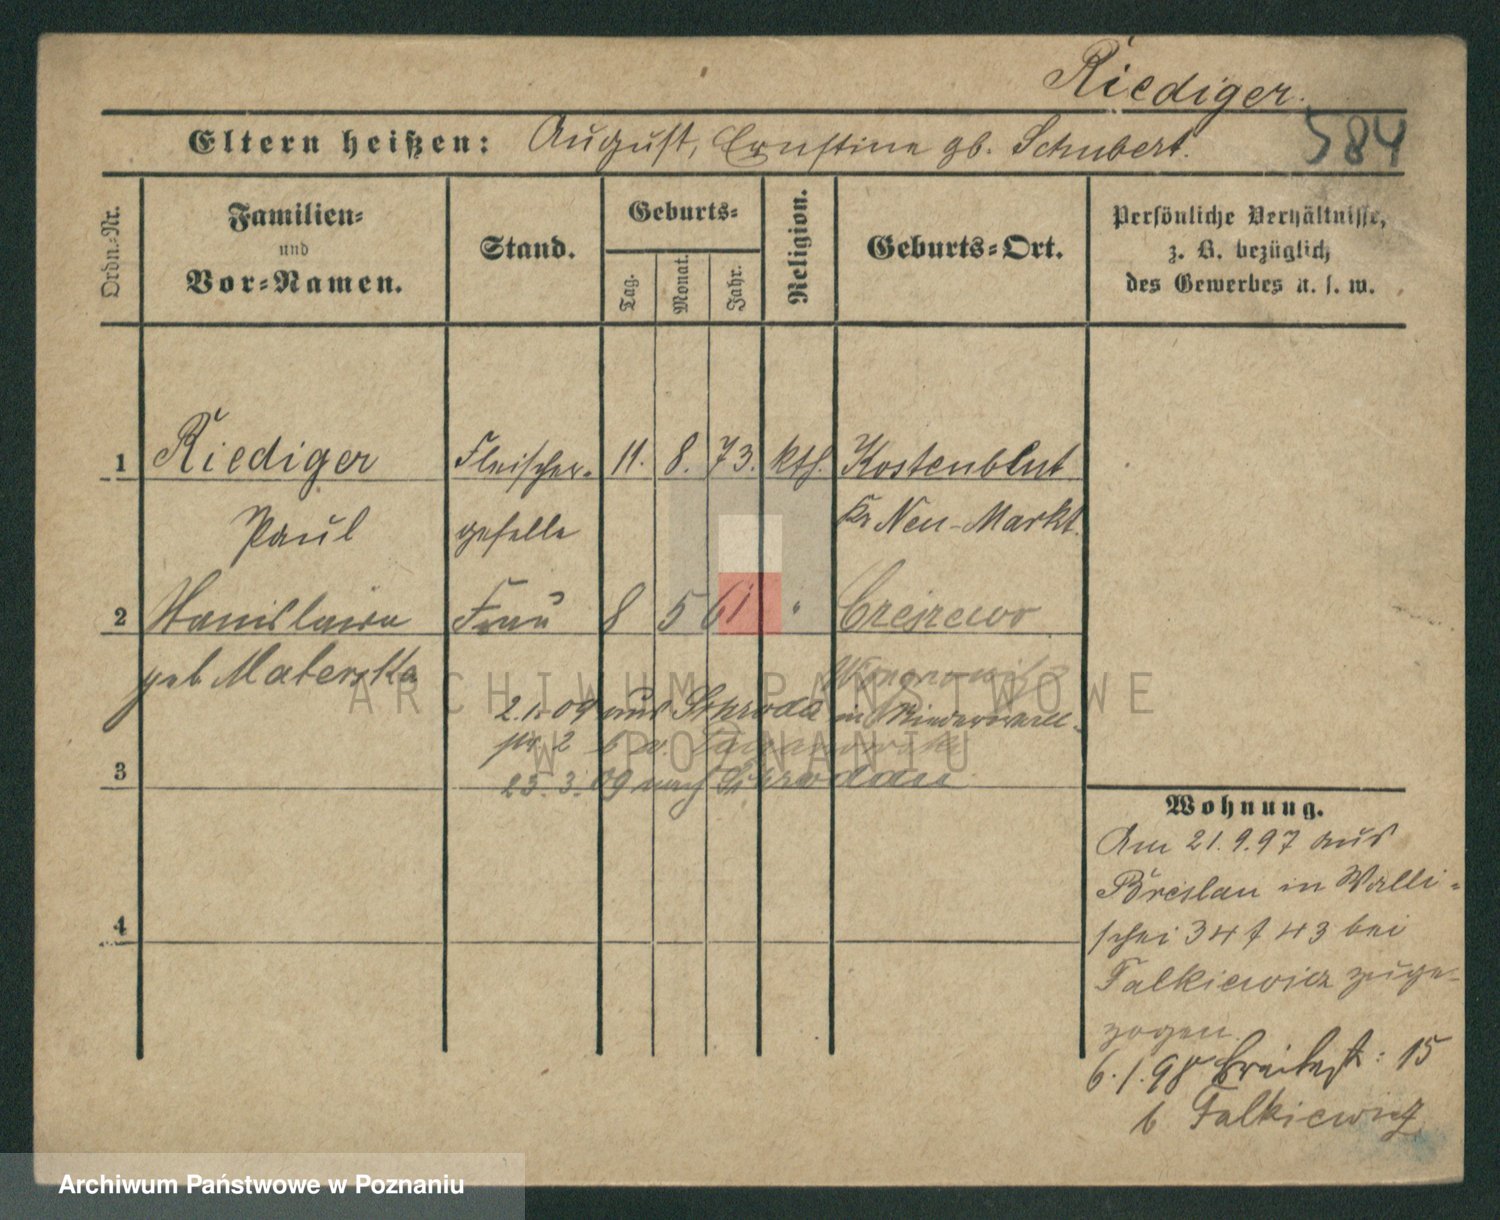 Riediger.
584
Eltern heißen: August, Ernstine gb. Schubert.
Ordn.-Nr.
Familien-
und
Vor-Namen.
Stand.
Geburts-
Tag.
Monat.
Jahr.
Religion.
Geburts-Ort.
Persönliche Verhältnisse,
z. B. bezüglich
des Gewerbes u. s. w.
1 Riediger Fleischer- 11. 8. 73. kth. Kostenblut
Paul geselle Kr Neu-Markt.
2 Stanislawa Frau 8 5 61 "
geb Materska
2.1.09 aus Schroda in Niederwall-
25.3.09 nach
3
4
Wohnung.
Am 21.9.97 aus
Breslau in Walli-
schei 34 f 43 bei
Falkiewicz zuge-
zogen
6.1.98 Breitestr: 15
b Falkiewicz
ARCHIWUM PAŃSTWOWE
W POZNANIU
Archiwum Państwowe w Poznaniu